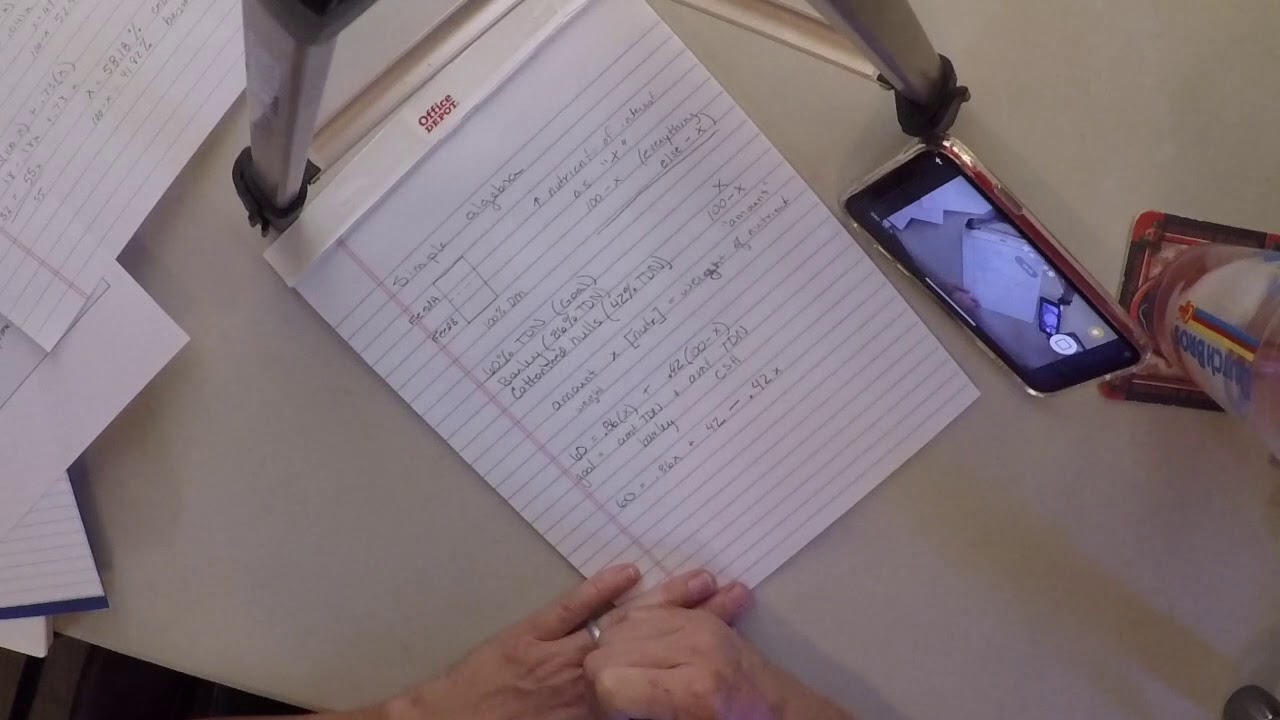 Office
DEPOT
Simple algebra
↑ nutrient of interest
as "X"
100-X (everything
else - X)
Feed A
Feed B
100% DM
60% TDN (Goal)
Barley (86% TDN)
Cottonseed hulls (42% TDN)
X
100-X
amount x [nutr] = weight of nutrient
weight
"amount"
60 = .86(x) + .42(100-x)
goal = amt TDN + amt TDN
barley
CSH
60 = .86x + 42 - .42x
+ .73(x)
18 - .18x + .73x
x = 58.18%
100-x = 41.82%
55x
55
100-x